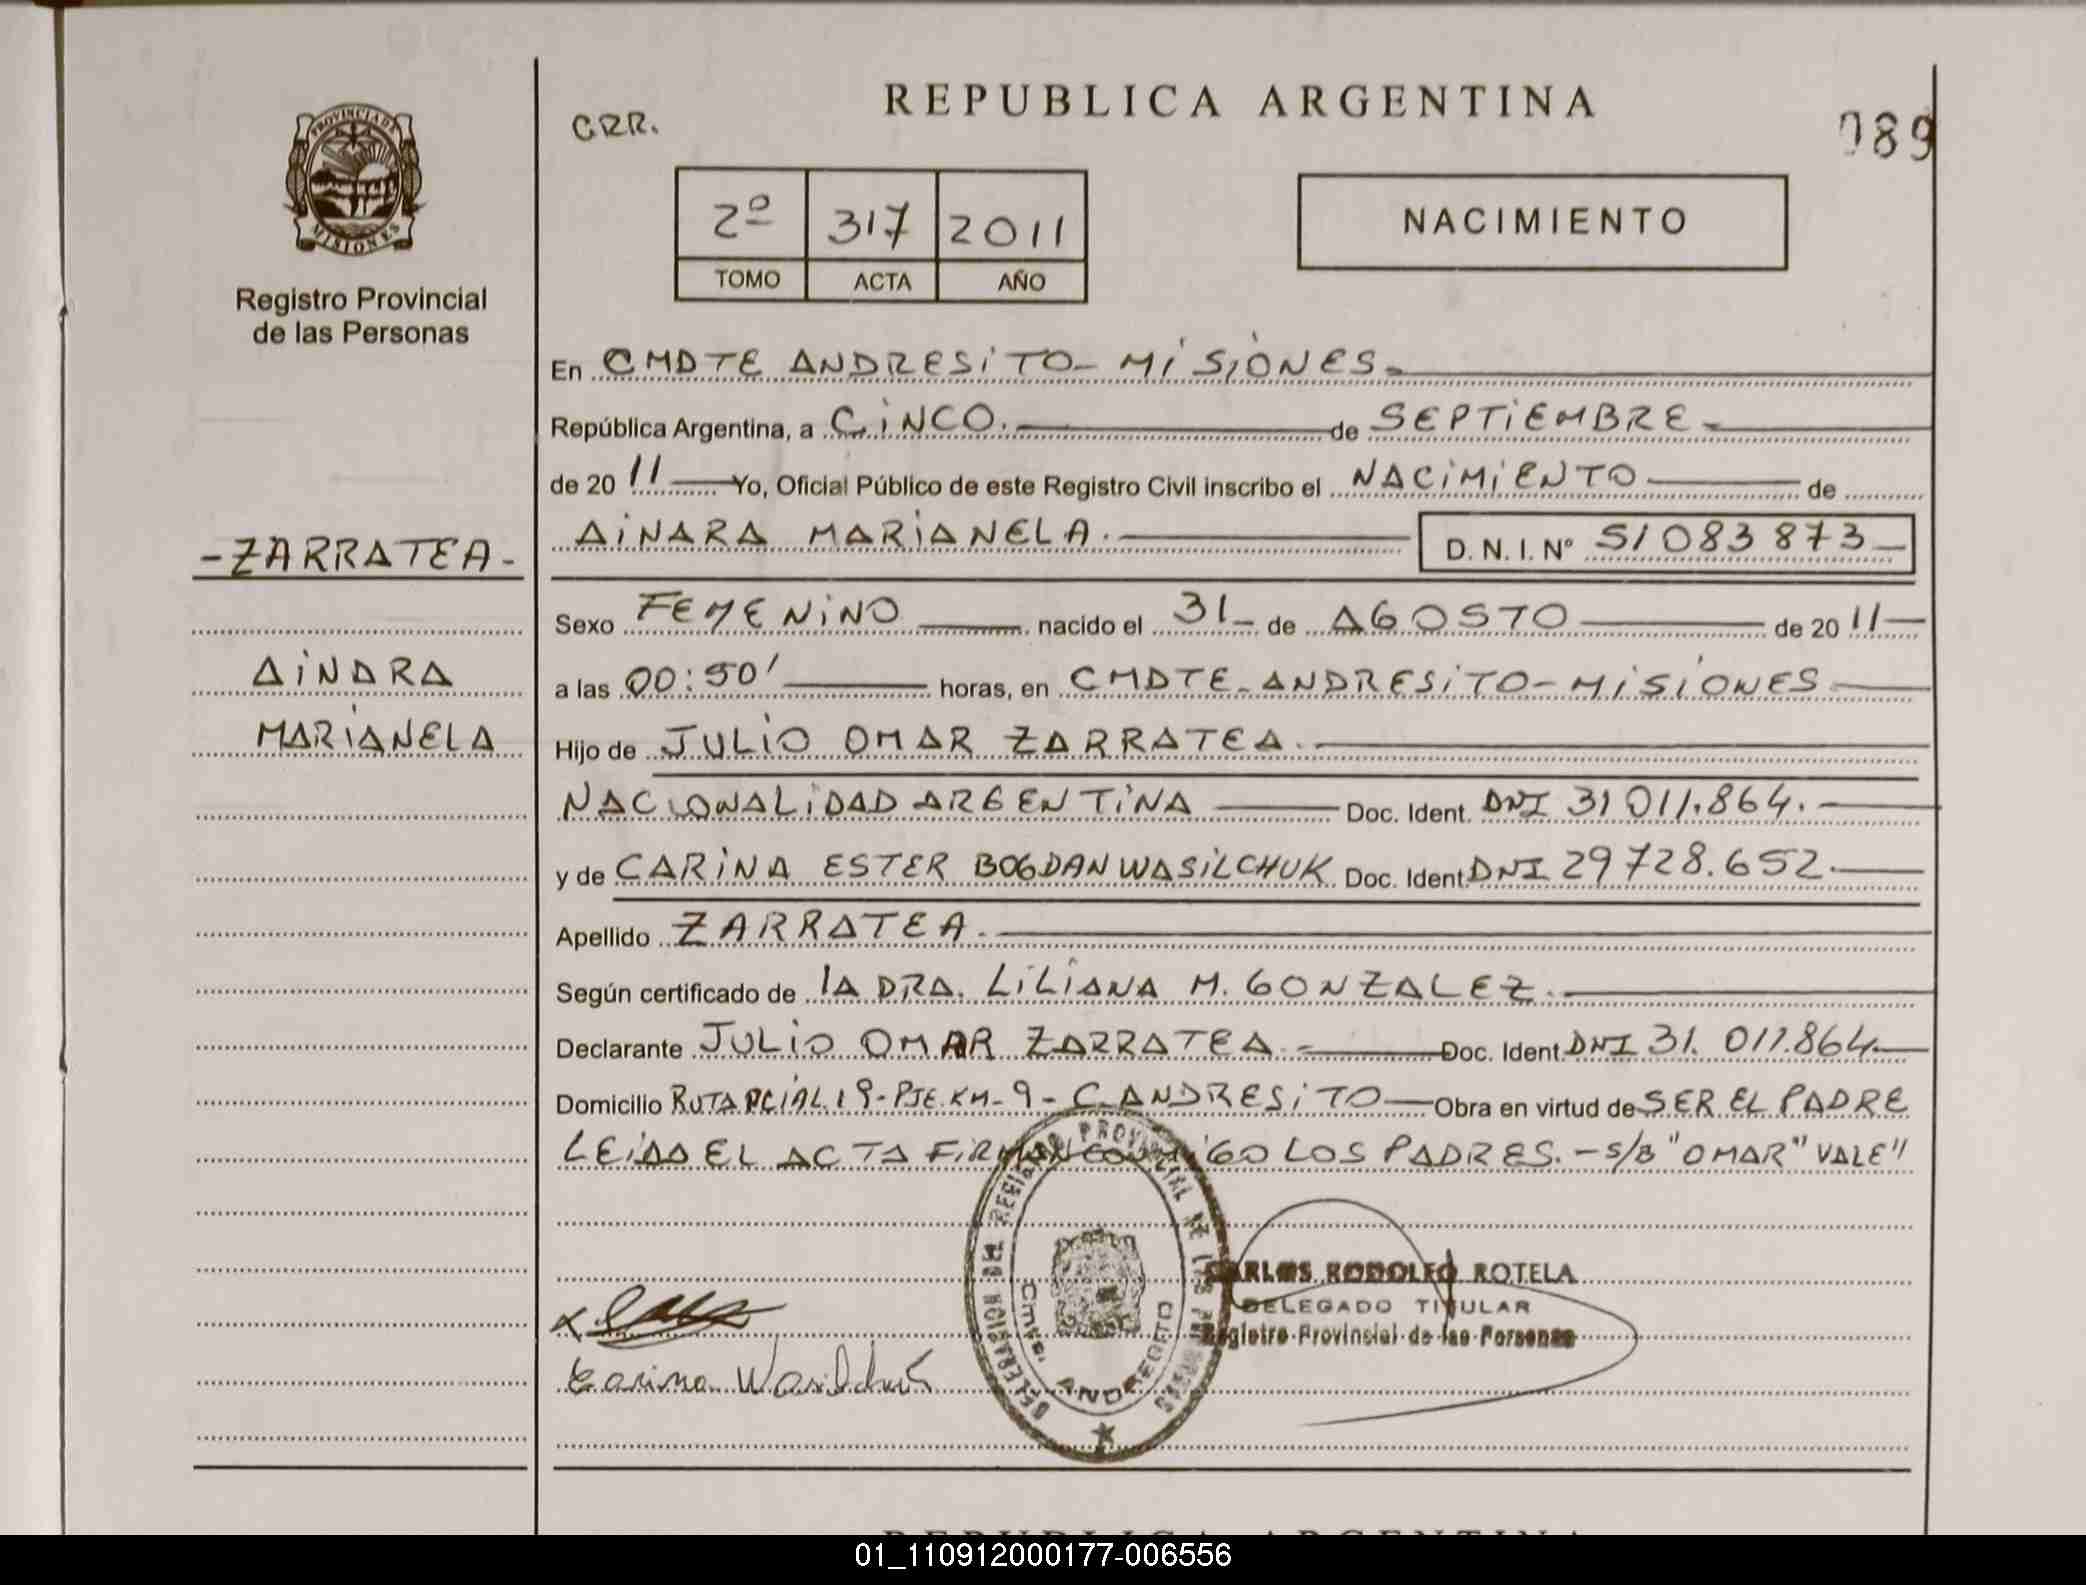 CRR.
REPUBLICA ARGENTINA
089
2º 317 2011
TOMO ACTA AÑO
NACIMIENTO
PROVINCIA DE
MISIONES
Registro Provincial
de las Personas
En CMDTE ANDRESiTO - MiSiONES.
República Argentina, a CiNCO. de SEPTiEMBRE
de 20 11 Yo, Oficial Público de este Registro Civil inscribo el NACiMiENTO de
AiNARA MARiANELA. D. N. I. Nº 51 083 873
-ZARRATEA-
AiNARA
MARiANELA
Sexo FEMENiNO nacido el 31 de AGOSTO de 20 11
a las 00:50' horas, en CMDTE ANDRESiTO - MiSiONES
Hijo de JULiO OMAR ZARRATEA.
NACiONALiDAD ARGENTiNA Doc. Ident. DNI 31 011.864.
y de CARiNA ESTER BOGDAN WASiLCHUK Doc. Ident DNI 29 728.652.
Apellido ZARRATEA.
Según certificado de lA DRA. LiLiANA M. GONZALEZ.
Declarante JULiO OMAR ZARRATEA - Doc. Ident DNI 31. 011.864
Domicilio RUTA PCiAL 19 - PJE. KM - 9 - C. ANDRESiTO Obra en virtud de SER EL PADRE
LEiDA EL ACTA FiRMAN CONMiGO LOS PADRES. - S/B "OMAR" VALE"
DELEGACION DEL REGISTRO PROVINCIAL DE LAS PERSONAS
Cmte. ANDRESITO
CARLOS RODOLFO ROTELA
DELEGADO TITULAR
Registro Provincial de las Personas
Carina Wasilchuk
REPUBLICA ARGENTINA
01_110912000177-006556